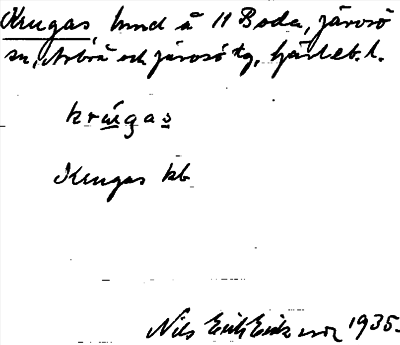 Krugas, hmd å 11 Boda, järvsö
sn, Arbrå och järvsö tg, Gävleb. l.
krúgas
Krugas kb
Nils Erik Eriksson 1935.